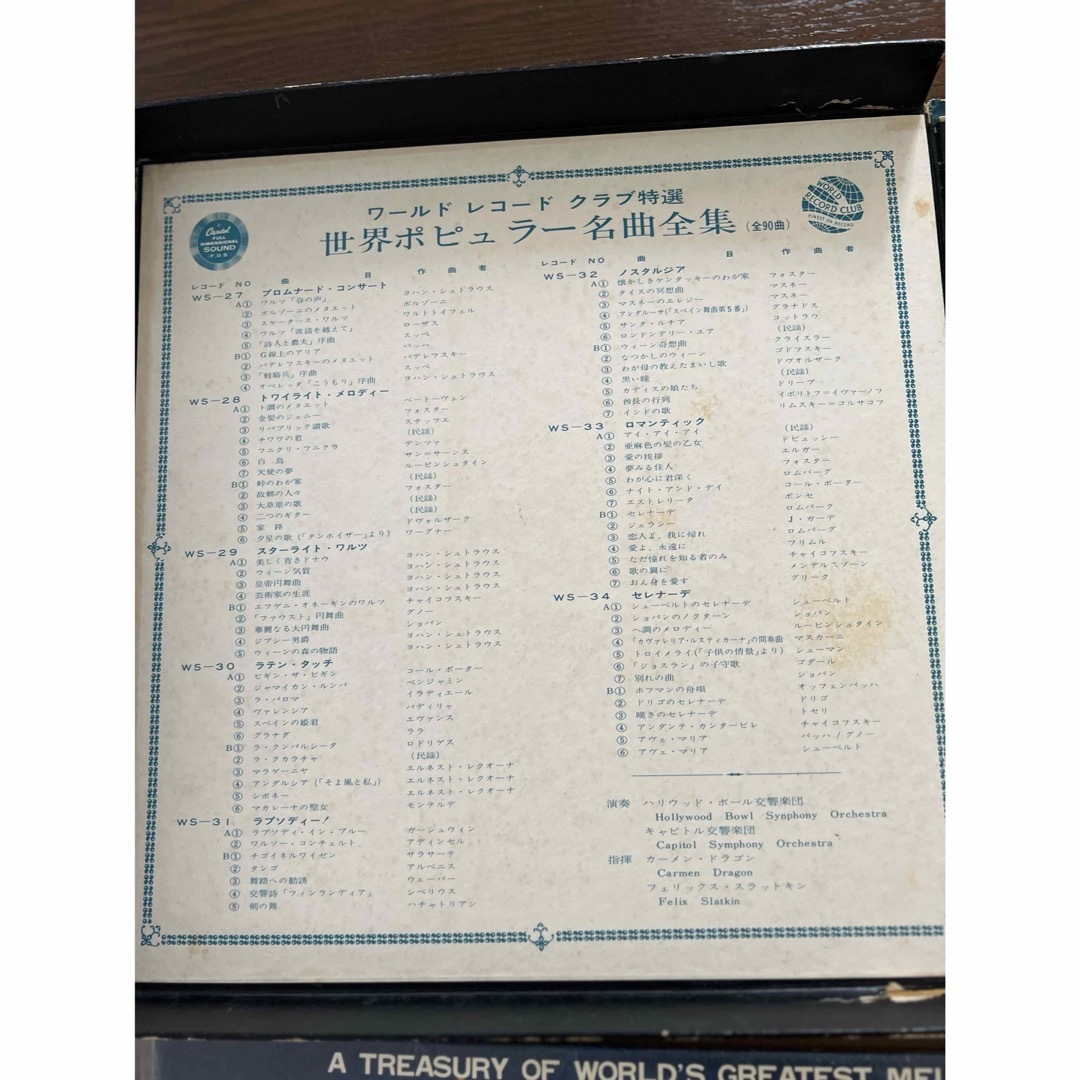 ワールド レコード クラブ特選
世界ポピュラー名曲全集(全90曲)
Capitol
FULL
DIMENSIONAL
SOUND
FDS
WORLD
RECORD CLUB
FINEST ON RECORD
レコード NO 曲 目 作 曲 者
WS-27 プロムナード・コンサート
A① ワルツ「春の声」 ヨハン・シュトラウス
② ボルゾーニのメヌエット ボルゾーニ
③ スケータース・ワルツ ワルトトイフェル
④ ワルツ「波濤を越えて」 ローザス
⑤ 「詩人と農夫」序曲 スッペ
B① G線上のアリア バッハ
② パデレフスキーのメヌエット パデレフスキー
③ 「軽騎兵」序曲 スッペ
④ オペレッタ「こうもり」序曲 ヨハン・シュトラウス
WS-28 トワイライト・メロディー
A① ト調のメヌエット ベートーヴェン
② 金髪のジェニー フォスター
③ リパブリック讃歌 ステッフェ
④ チワワの君 (民謡)
⑤ フニクリ・フニクラ デンツァ
⑥ 白 鳥 サン=サーンス
⑦ 天使の夢 ルービンシュタイン
B① 峠のわが家 (民謡)
② 故郷の人々 フォスター
③ 大草原の歌 (民謡)
④ 二つのギター (民謡)
⑤ 家 路 ドヴォルザーク
⑥ 夕星の歌(「タンホイザー」より) ワーグナー
WS-29 スターライト・ワルツ
A① 美しく青きドナウ ヨハン・シュトラウス
② ウィーン気質 ヨハン・シュトラウス
③ 皇帝円舞曲 ヨハン・シュトラウス
④ 芸術家の生涯 ヨハン・シュトラウス
B① エフゲニ・オネーギンのワルツ チャイコフスキー
② 「ファウスト」円舞曲 グノー
③ 華麗なる大円舞曲 ショパン
④ ジプシー男爵 ヨハン・シュトラウス
⑤ ウィーンの森の物語 ヨハン・シュトラウス
WS-30 ラテン・タッチ
A① ビギン・ザ・ビギン コール・ポーター
② ジャマイカン・ルンバ ベンジャミン
③ ラ・パロマ イラディエール
④ ヴァレンシア パディリャ
⑤ スペインの姫君 エヴァンス
⑥ グラナダ ララ
B① ラ・クンパルシータ ロドリゲス
② ラ・クカラチャ (民謡)
③ マラゲーニャ エルネスト・レクオーナ
④ アンダルシア(「そよ風と私」) エルネスト・レクオーナ
⑤ シボネー エルネスト・レクオーナ
⑥ マカレーナの聖女 モンテルデ
WS-31 ラプソディー!
A① ラプソディ・イン・ブルー ガーシュウィン
② ワルソー・コンチェルト アディンセル
B① チゴイネルワイゼン サラサーテ
② タンゴ アルベニス
③ 舞踏への勧誘 ウェーバー
④ 交響詩「フィンランディア」 シベリウス
⑤ 剣の舞 ハチャトリアン
レコード NO 曲 目 作 曲 者
WS-32 ノスタルジア
A① 懐かしきケンタッキーのわが家 フォスター
② タイスの冥想曲 マスネー
③ マスネーのエレジー マスネー
④ アンダルーサ(「スペイン舞曲第5番」) グラナドス
⑤ サンタ・ルチア コットラウ
⑥ ロンドンデリー・エア (民謡)
B① ウィーン奇想曲 クライスラー
② なつかしのウィーン ゴドフスキー
③ わが母の教えたまいし歌 ドヴオルザーク
④ 黒い瞳 (民謡)
⑤ カディスの娘たち ドリーブ
⑥ 酋長の行列 イポリトフ=イヴァーノフ
⑦ インドの歌 リムスキー=コルサコフ
WS-33 ロマンティック
A① アイ・アイ・アイ (民謡)
② 亜麻色の髪の乙女 ドビュッシー
③ 愛の挨拶 エルガー
④ 夢みる佳人 フォスター
⑤ わが心に君深く ロムバーグ
⑥ ナイト・アンド・デイ コール・ポーター
⑦ エストレリータ ポンセ
B① セレナーデ ロムバーク
② ジェラシー J・ガーデ
③ 恋人よ、我に帰れ ロムバーグ
④ 愛よ、永遠に フリムル
⑤ ただ憧れを知る者のみ チャイコフスキー
⑥ 歌の翼に メンデルスゾーン
⑦ おん身を愛す グリーク
WS-34 セレナーデ
A① シューベルトのセレナーデ シューベルト
② ショパンのノクターン ショパン
③ ヘ調のメロディー ルービンシュタイン
④ 「カヴァレリア・ルスティカーナ」の間奏曲 マスカーニ
⑤ トロイメライ(「子供の情景」より) シューマン
⑥ 「ジョスラン」の子守歌 ゴダール
⑦ 別れの曲 ショパン
B① ホフマンの舟唄 オッフェンバッハ
② ドリゴのセレナーデ ドリゴ
③ 嘆きのセレナーデ トセリ
④ アンダンテ・カンタービレ チャイコフスキー
⑤ アヴェ・マリア バッハ/グノー
⑥ アヴェ・マリア シューベルト
演奏 ハリウッド・ボール交響楽団
Hollywood Bowl Symphony Orchestra
キャピトル交響楽団
Capitol Symphony Orchestra
指揮 カーメン・ドラゴン
Carmen Dragon
フェリックス・スラットキン
Felix Slatkin
A TREASURY OF WORLD'S GREATEST MEL